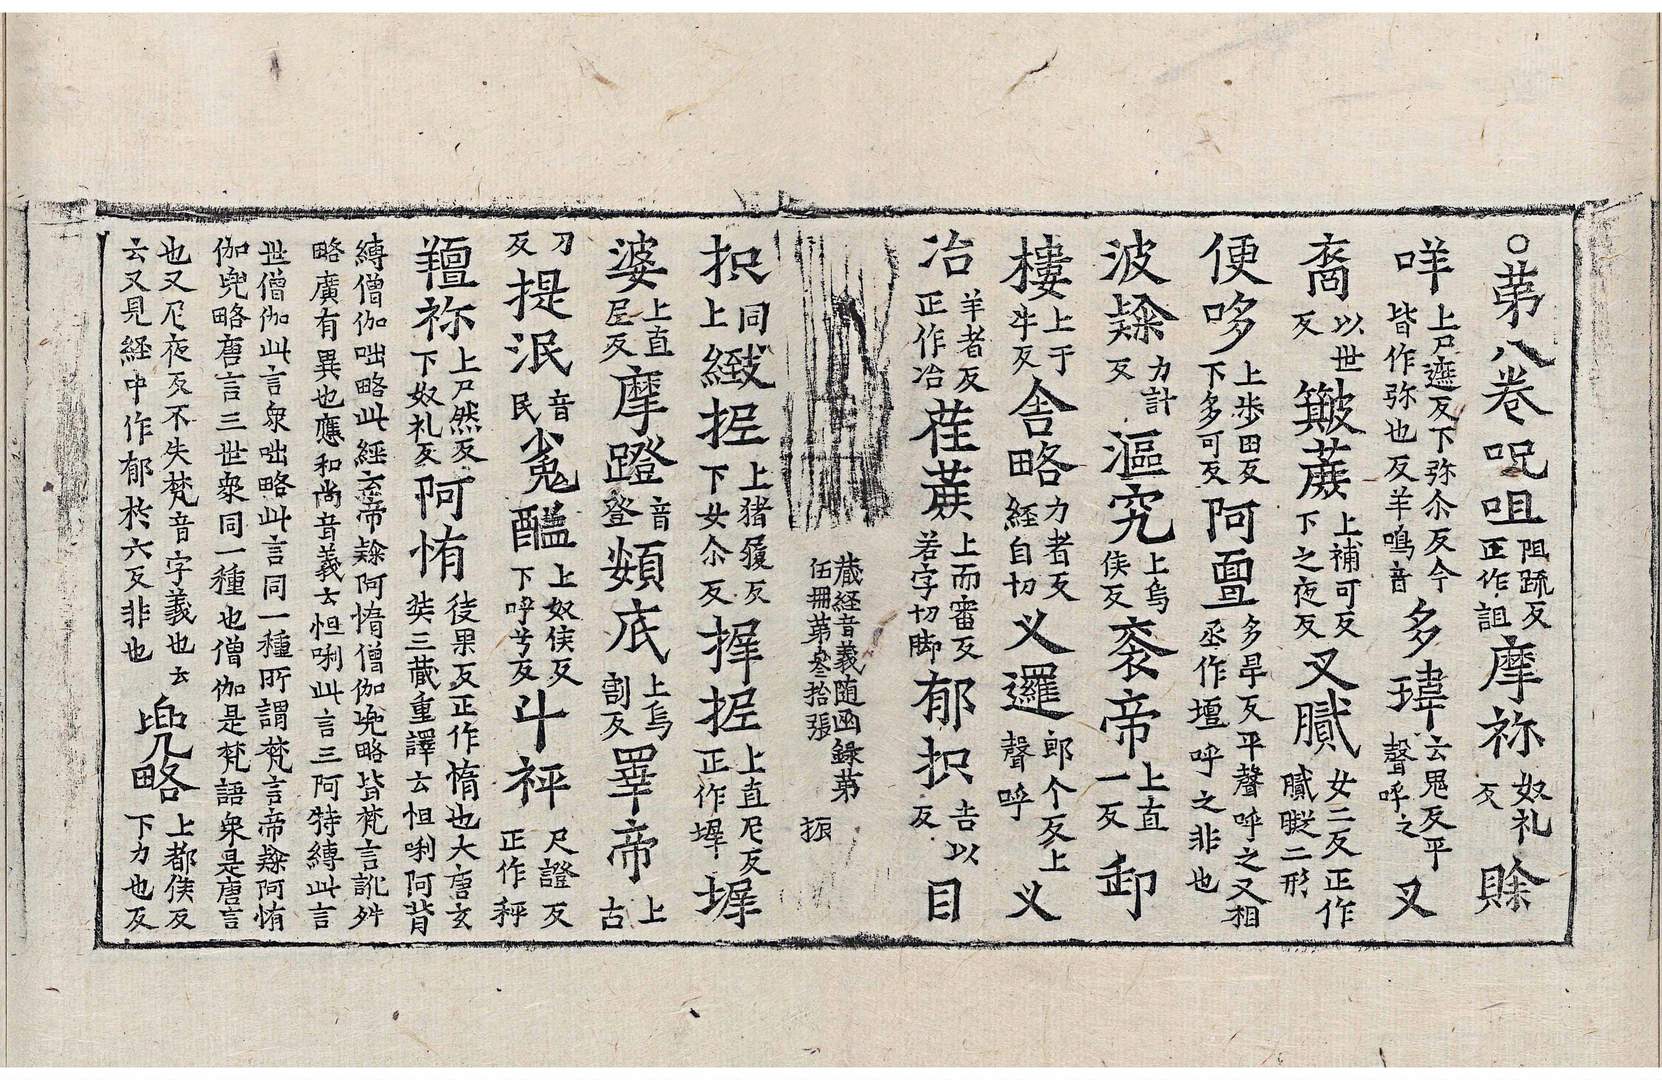 ○苐八卷呪咀阻䟽反正作詛摩祢奴礼反賖
咩上尸遮反下弥尒反今皆作弥也反羊鳴音多瑋云鬼反平聲呼之又
裔以世反簸䕏上補可反下之夜反又膩女二反正作膩䁥二形
便哆上步田反下多可反阿亶多旱反平聲呼之又相丞作壇呼之非也
波㱯力計反漚究上烏侯反袠帝上直一反卸
樓上于牛反舍略力者反經自切义邏郎个反上聲呼义
冶羊者反正作冶荏䕏上而審反若字切脚郁抧吉以反目
藏経音義随函録苐伍冊苐叄拾張 振
抧同上緻抳上猪履反下女尒反摨抳上直尼反正作墀墀
婆上直尼反摩蹬音登頞底上烏割反睪帝上古
刀反提泯音民㲋醯上奴侯反下呼兮反斗秤尺證反正作稱
羶祢上尸然反下奴礼反阿惰徒果反正作惰也大唐玄奘三藏重譯云怛唎阿背
縛僧伽咄略此經云帝㱯阿惰僧伽兜略皆梵言訛舛略廣有異也應和尚音義云怛唎此言三阿特縛此言
世僧伽此言衆咄略此言同一種所謂梵言帝㱯阿惰伽兜略唐言三世衆同一種也僧伽是梵語衆是唐言
也又尼夜反不失梵音字義也云云又見経中作郁於六反非也兜略上都侯反下力也反